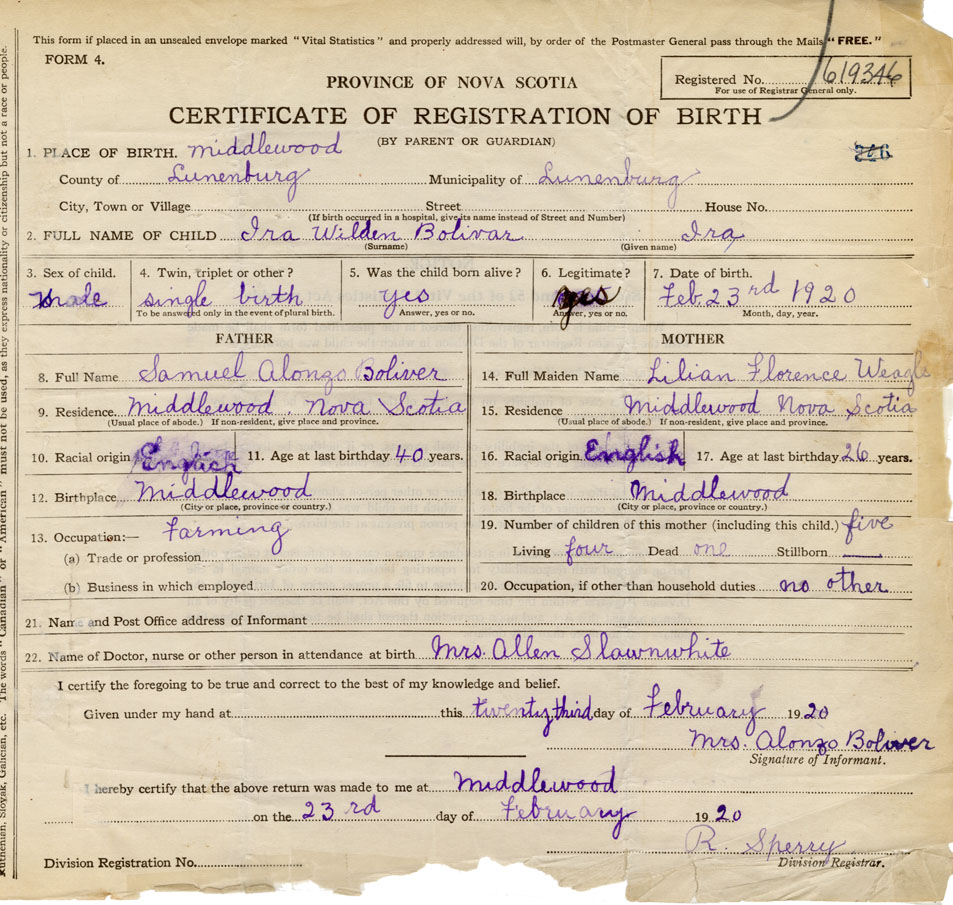 This form if placed in an unsealed envelope marked "Vital Statistics" and properly addressed will, by order of the Postmaster General pass through the Mails "FREE."
FORM 4.
PROVINCE OF NOVA SCOTIA
Registered No. 619346
For use of Registrar General only.
CERTIFICATE OF REGISTRATION OF BIRTH
(BY PARENT OR GUARDIAN)
1. PLACE OF BIRTH. Middlewood
County of Lunenburg Municipality of Lunenburg
City, Town or Village Street House No.
(If birth occurred in a hospital, give its name instead of Street and Number)
2. FULL NAME OF CHILD Ira Wilden Bolivar Ira
(Surname) (Given name)
3. Sex of child. 4. Twin, triplet or other? 5. Was the child born alive? 6. Legitimate? 7. Date of birth.
Male single birth yes yes Feb. 23rd 1920
To be answered only in the event of plural birth. Answer, yes or no. Answer, yes or no. Month, day, year.
FATHER MOTHER
8. Full Name Samuel Alonzo Boliver 14. Full Maiden Name Lilian Florence Weagle
9. Residence Middlewood, Nova Scotia 15. Residence Middlewood Nova Scotia
(Usual place of abode.) If non-resident, give place and province. (Usual place of abode.) If non-resident, give place and province.
10. Racial origin English 11. Age at last birthday 40 years. 16. Racial origin English 17. Age at last birthday 26 years.
12. Birthplace Middlewood 18. Birthplace Middlewood
(City or place, province or country.) (City or place, province or country.)
13. Occupation:— Farming 19. Number of children of this mother (including this child.) five
(a) Trade or profession Living four Dead one Stillborn —
(b) Business in which employed 20. Occupation, if other than household duties no other
21. Name and Post Office address of Informant
22. Name of Doctor, nurse or other person in attendance at birth Mrs. Allen Slawnwhite
I certify the foregoing to be true and correct to the best of my knowledge and belief.
Given under my hand at this twenty third day of February 1920
Mrs. Alonzo Boliver
Signature of Informant.
I hereby certify that the above return was made to me at Middlewood
on the 23rd day of February 1920
R. Sperry
Division Registrar.
Division Registration No.
Ruthenian, Slovak, Galician, etc. The words "Canadian" or "American" must not be used, as they express nationality or citizenship but not a race or people.